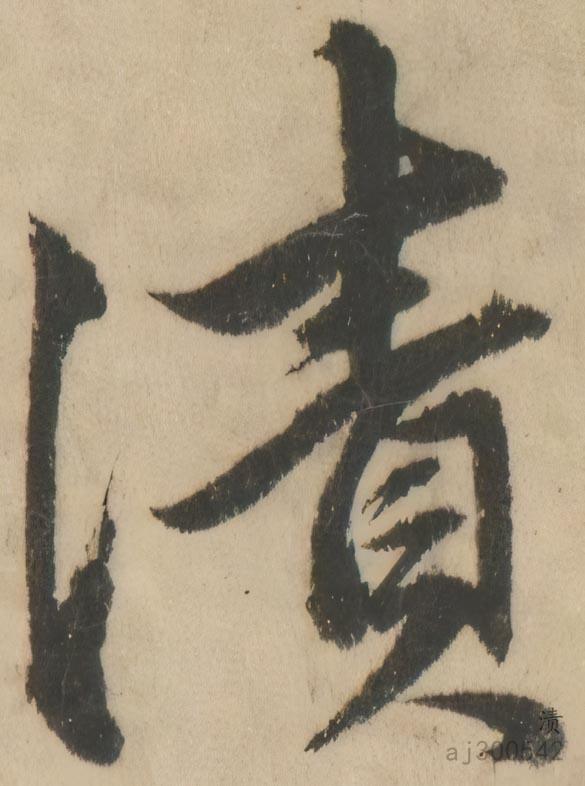 渍
渍
aj300542